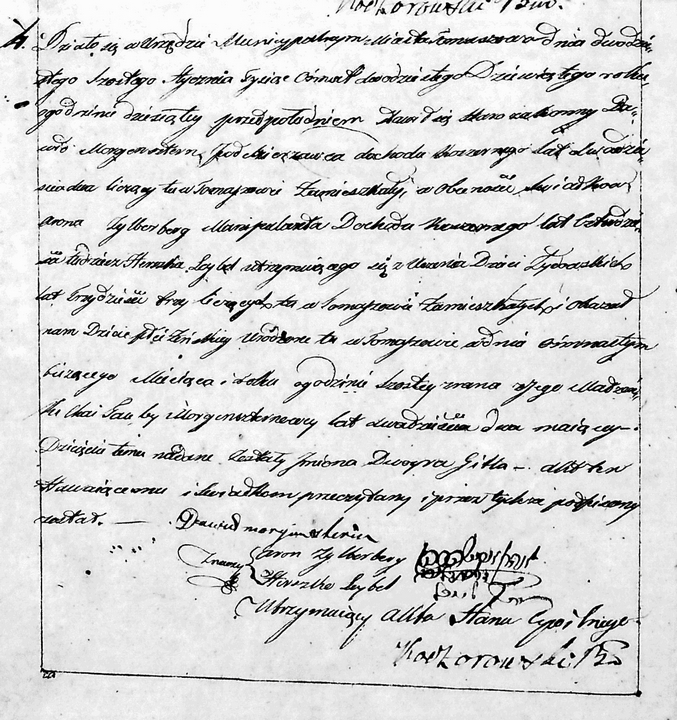 Koczorowski Bur.
4. Działo się w Urzędzie Municypalnym Miasta Tomaszowa dnia dwódzie-
stego Szóstego Stycznia Tysiąc Osmset dwodziestego Dziewiątego roku
o godzinie dziesiątej przed południem Stawił się Starozakonny Da-
wid Morgensztern, Poddzierżawca dochodu Koszernego lat dwadzie-
ścia dwa liczący tu w Tomaszowie Zamieszkały, w obecności Świadków
Arona Zylberberg Manipulanta Dochodu Koszernego lat Czterdzie-
ści tudzież Herszka Leybel utrzymującego się z Uczenia Dzieci Żydowskich
lat trzydzieści trzy liczących tu w Tomaszowie Zamieszkałych, i okazał
nam Dziecię płci Żeńskiej urodzone tu w Tomaszowie w dniu osmnastym
bieżącego Miesiąca i Roku o godzinie szóstej zrana z jego Małżon-
ki Chai Morgenszternowy lat dwadzieścia dwa maiący.
Dziecięciu temu nadane zostały Imiona Dwoyra Gitla — Akt ten
Stawaiącemu i Świadkom przeczytany i przez tychże podpisany
został. —
Dawid morgensztern
Znaczy Aron Zylberberg
Herszko Leybel
Utrzymuiący Akta Stanu Cywilnego
Koczorowski